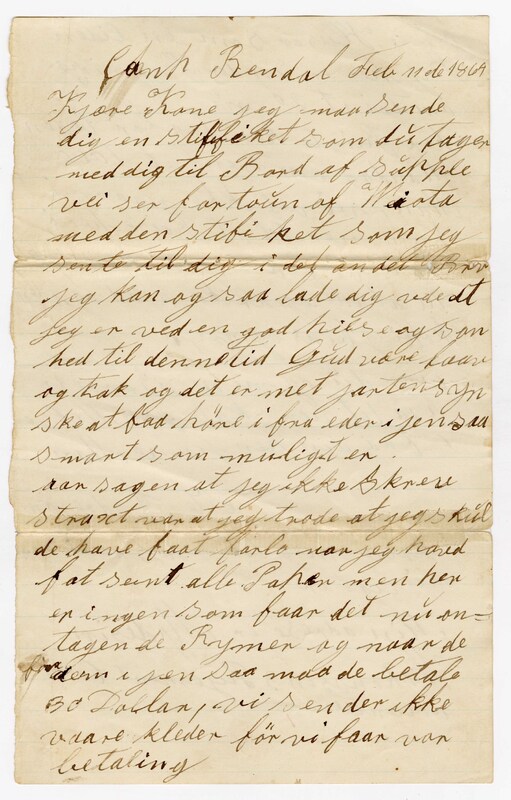 Camp Rendal Feb 11 de 1864
Kjære Kone jeg maa sende
dig en stiffiket som du tager
med dig til Bord af supple
vei ser for toun of Wiota
med den stifiket som jeg
sente til dig i det andet Brev
jeg kan og saa lade dig vde at
jeg er ved en god hilse og son
hed til denne tid Gud være laav
og tak og det er met jarten syn
ske at faa høre i fra eder i jen saa
smart som muligt er.
aar sagen at jeg ikke skrev
straxt var at jeg trode at jeg skul
de have faat forlo nar jeg havd
fot sent alle Paper men her
er ingen som faar det nu on=
tagen de Rymer og naar de
faar dem i jen saa maa de betale
30 Dollar, vi sender ikke
vaare kleder för vi faar vor
betaling